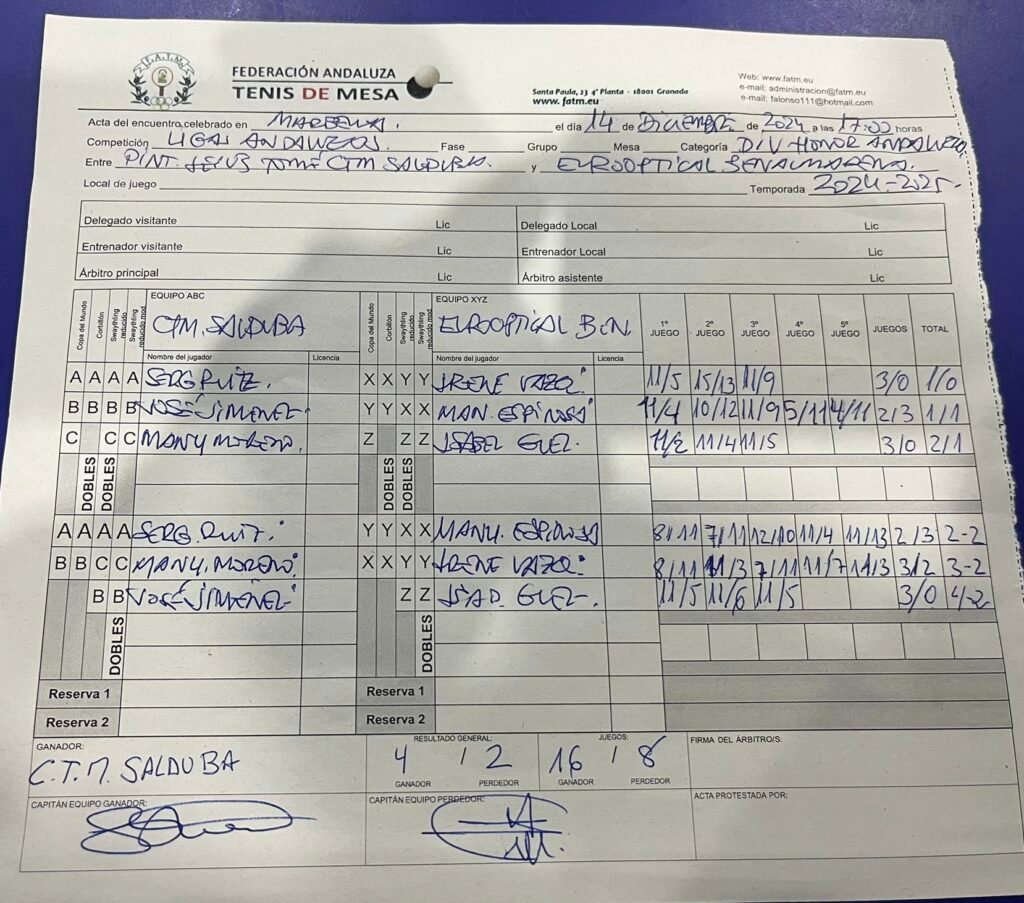 F.A.T.M.
FEDERACIÓN ANDALUZA
TENIS DE MESA
Santa Paula, 23 4ª Planta - 18001 Granada
www.fatm.eu
Web: www.fatm.eu
e-mail: administracion@fatm.eu
e-mail: falonso111@hotmail.com
Acta del encuentro celebrado en MARBELLA. el día 14 de Diciembre de 2024 a las 17:00 horas
Competición LIGAS ANDALUZAS. Fase Grupo Mesa Categoría DIV HONOR ANDALUZA
Entre PINT. JESUS TOMÉ CTM SALDUBA. y EUROOPTICAL BENALMADENA.
Local de juego Temporada 2024-2025.
Delegado visitante Lic Delegado Local Lic
Entrenador visitante Lic Entrenador Local Lic
Árbitro principal Lic Árbitro asistente Lic
Copa del Mundo Corbillón Swaythling reducido Swaythling reducido mod. EQUIPO ABC CTM. SALDUBA Copa del Mundo Corbillón Swaythling reducido Swaythling reducido mod. EQUIPO XYZ EUROOPTICAL BEN. 1º JUEGO 2º JUEGO 3º JUEGO 4º JUEGO 5º JUEGO JUEGOS TOTAL
Nombre del jugador Licencia Nombre del jugador Licencia
A A A A SERG RUIZ. X X Y Y IRENE 11/5 15/13 11/9 3/0 1/0
B B B B JOSÉ JIMENEZ. Y Y X X MAN. ESPINOSA 11/4 10/12 11/9 5/11 4/11 2/3 1/1
C C C MANU MORENO. Z Z Z ISABEL GUEZ. 11/2 11/4 11/5 3/0 2/1
DOBLES DOBLES DOBLES DOBLES
A A A A SERG. RUIZ. Y Y X X MANU. ESPINOSA 8/11 7/11 12/10 11/4 11/13 2/3 2-2
B B C C MANU. MORENO. X X Y Y IRENE 8/11 11/3 7/11 11/7 3/2 3-2
B B JOSÉ JIMENEZ Z Z GUEZ. 11/5 11/6 11/5 3/0 4-2
DOBLES DOBLES
Reserva 1 Reserva 1
Reserva 2 Reserva 2
GANADOR: C.T.M. SALDUBA
RESULTADO GENERAL: 4 / 2
GANADOR PERDEDOR
JUEGOS: 16 / 8
GANADOR PERDEDOR
FIRMA DEL ÁRBITRO/S:
CAPITÁN EQUIPO GANADOR: CAPITÁN EQUIPO PERDEDOR: ACTA PROTESTADA POR: